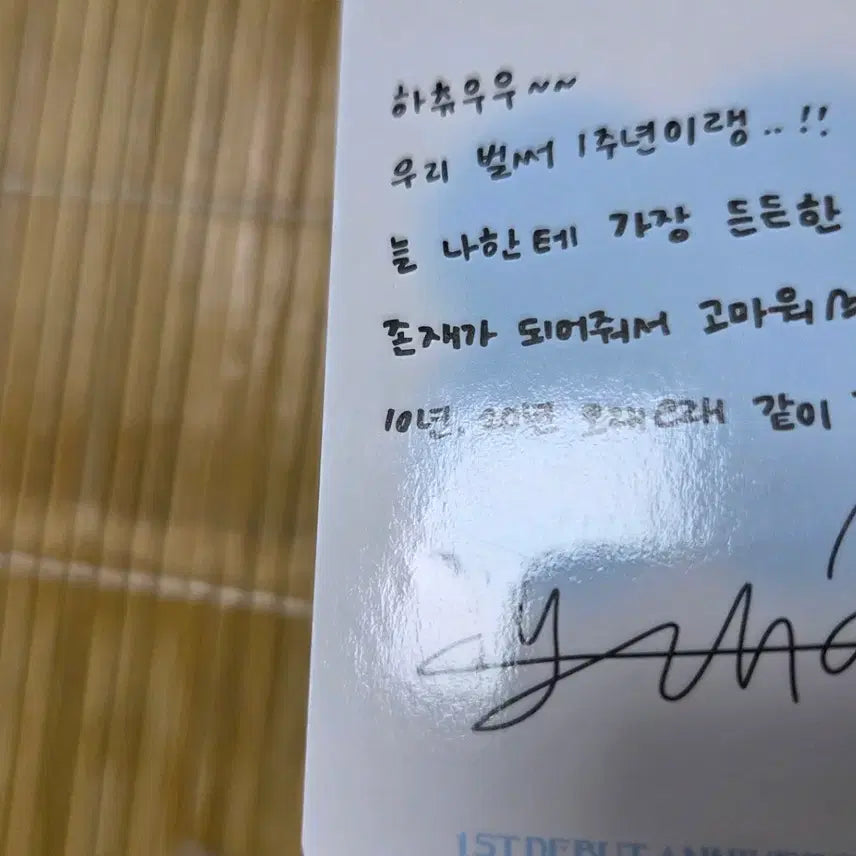 하츄우우~~
우리 벌써 1주년이랭..!!
늘 나한테 가장 든든한
존재가 되어줘서 고마워
10년, 20년 오래오래 같이
1ST DEBUT